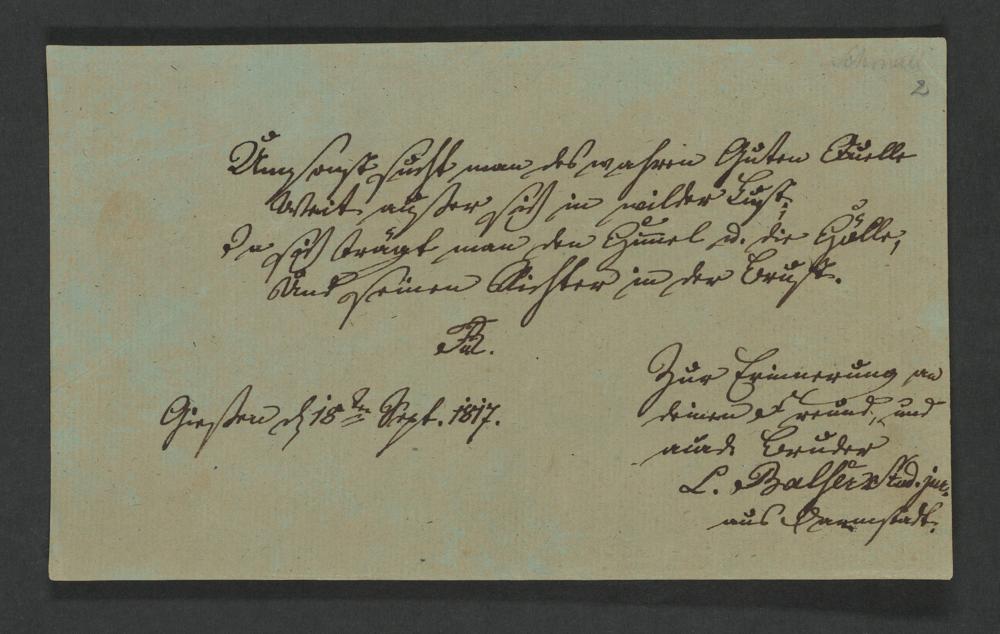 2
Umsonst sucht man des wahren Guten Quelle
Weit außer sich in wilder Lust;
In sich trägt man den Himmel u. die Hölle,
Und seinen Richter in der Brust.
Gießen d 18ten Sept. 1817.
Zur Erinnerung an
deinen Freund, und
acad. Bruder
L. Balser Stud. jur.
aus Darmstadt.